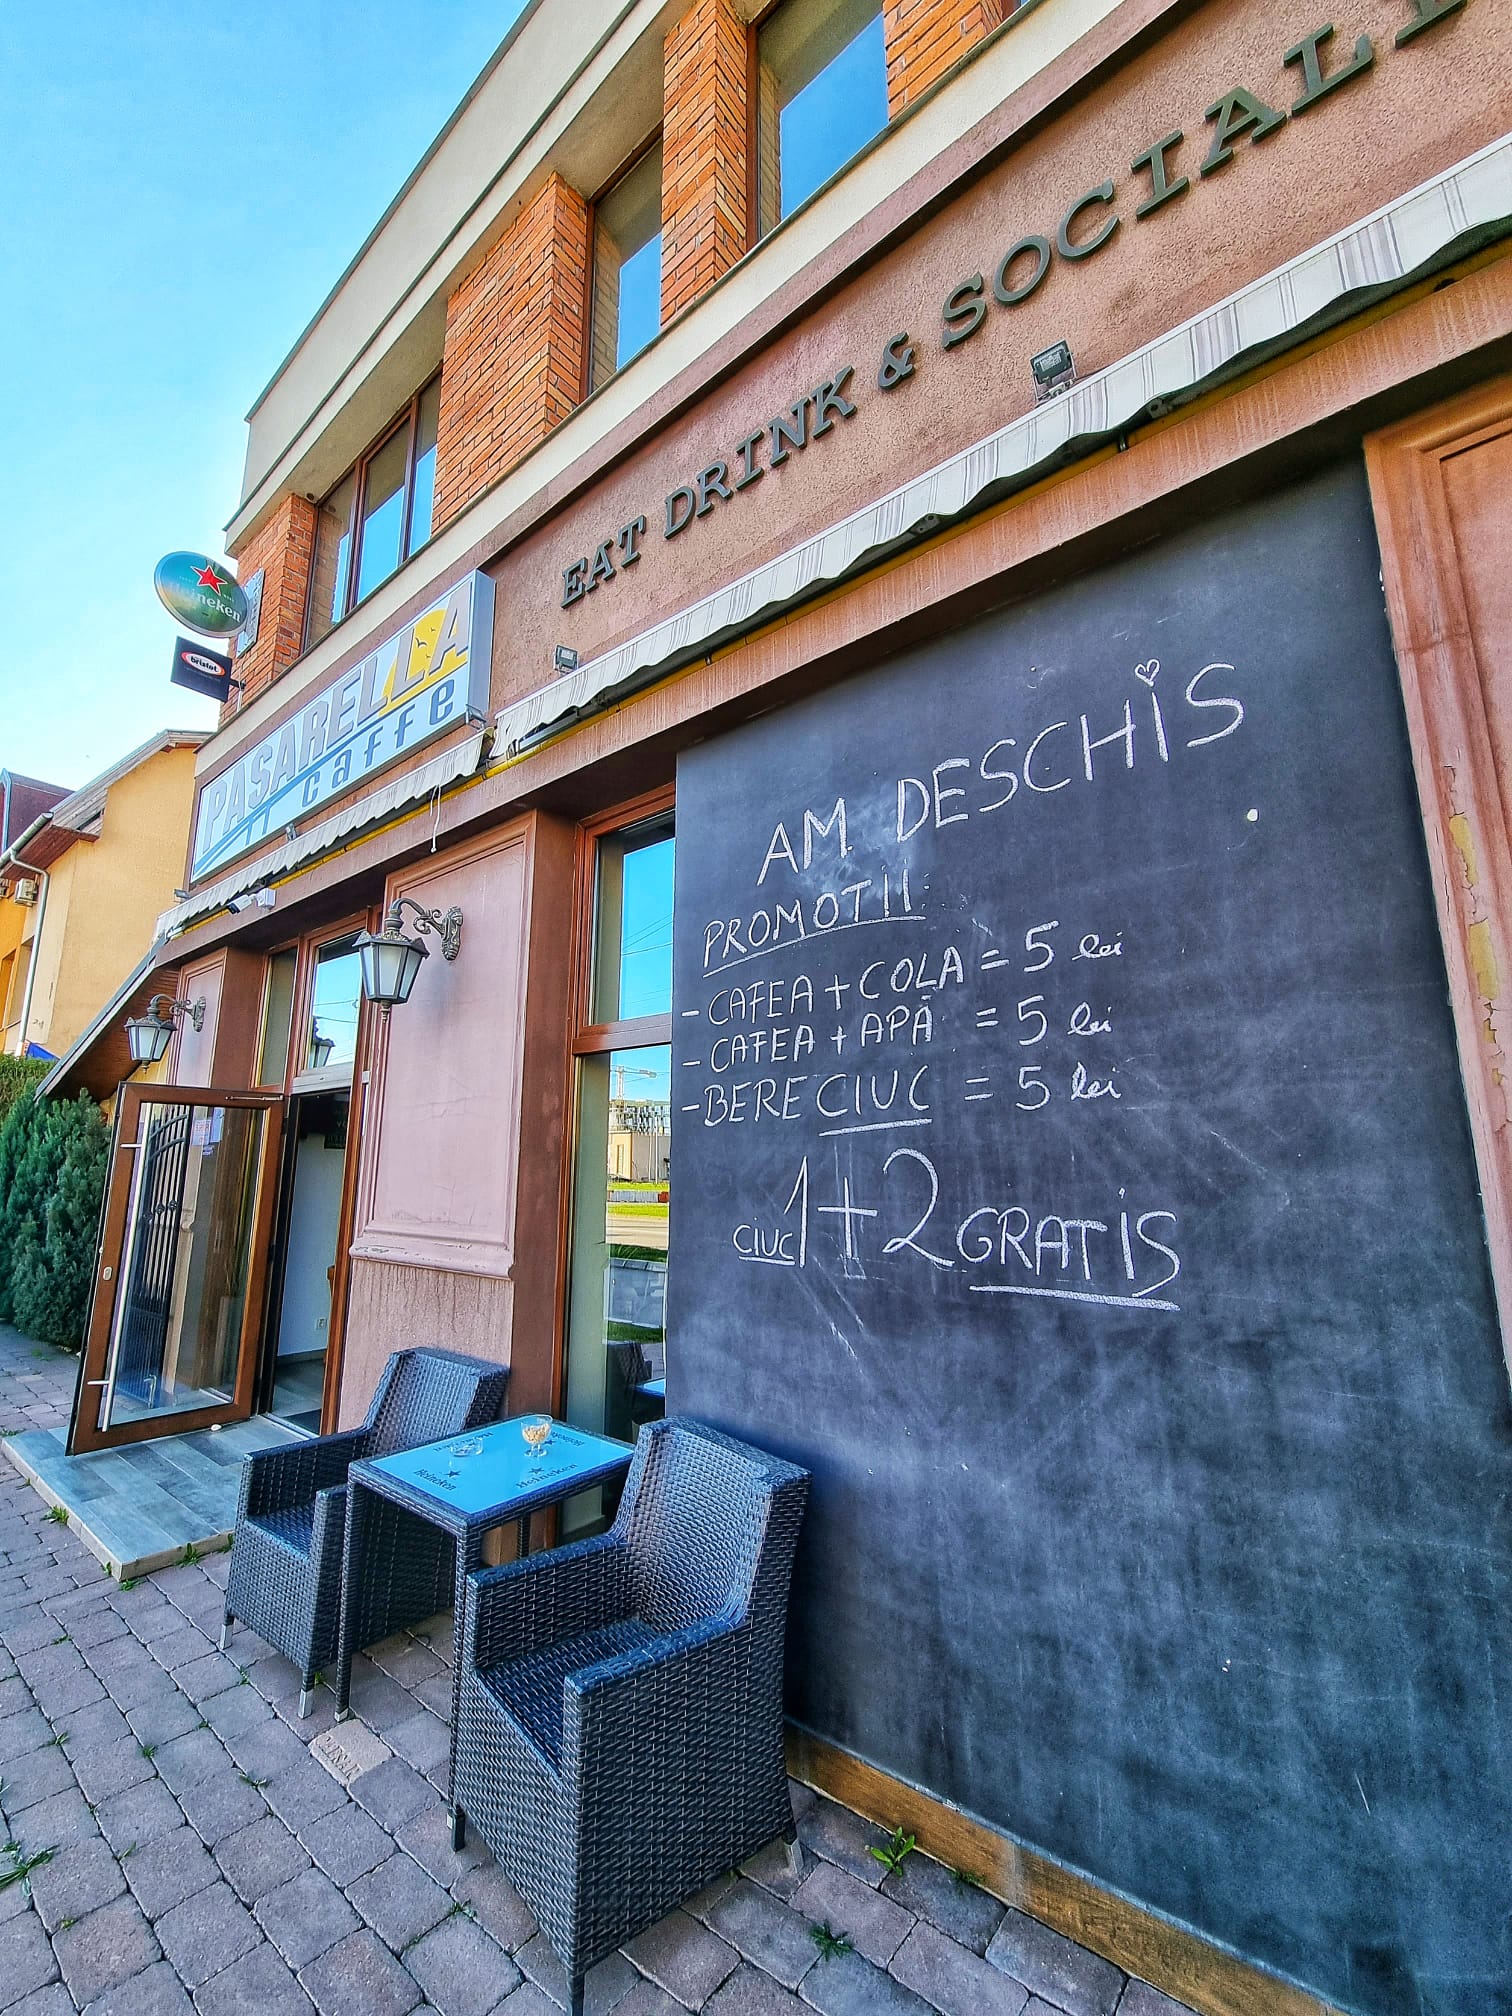 EAT DRINK & SOCIALI
Heineken
bristot
PASARELLA
caffe
AM DESCHIS
PROMOTII:
- CAFEA + COLA = 5 lei
- CAFEA + APĂ = 5 lei
- BERE CIUC = 5 lei
CIUC 1 + 2 GRATIS
Heineken
Heineken